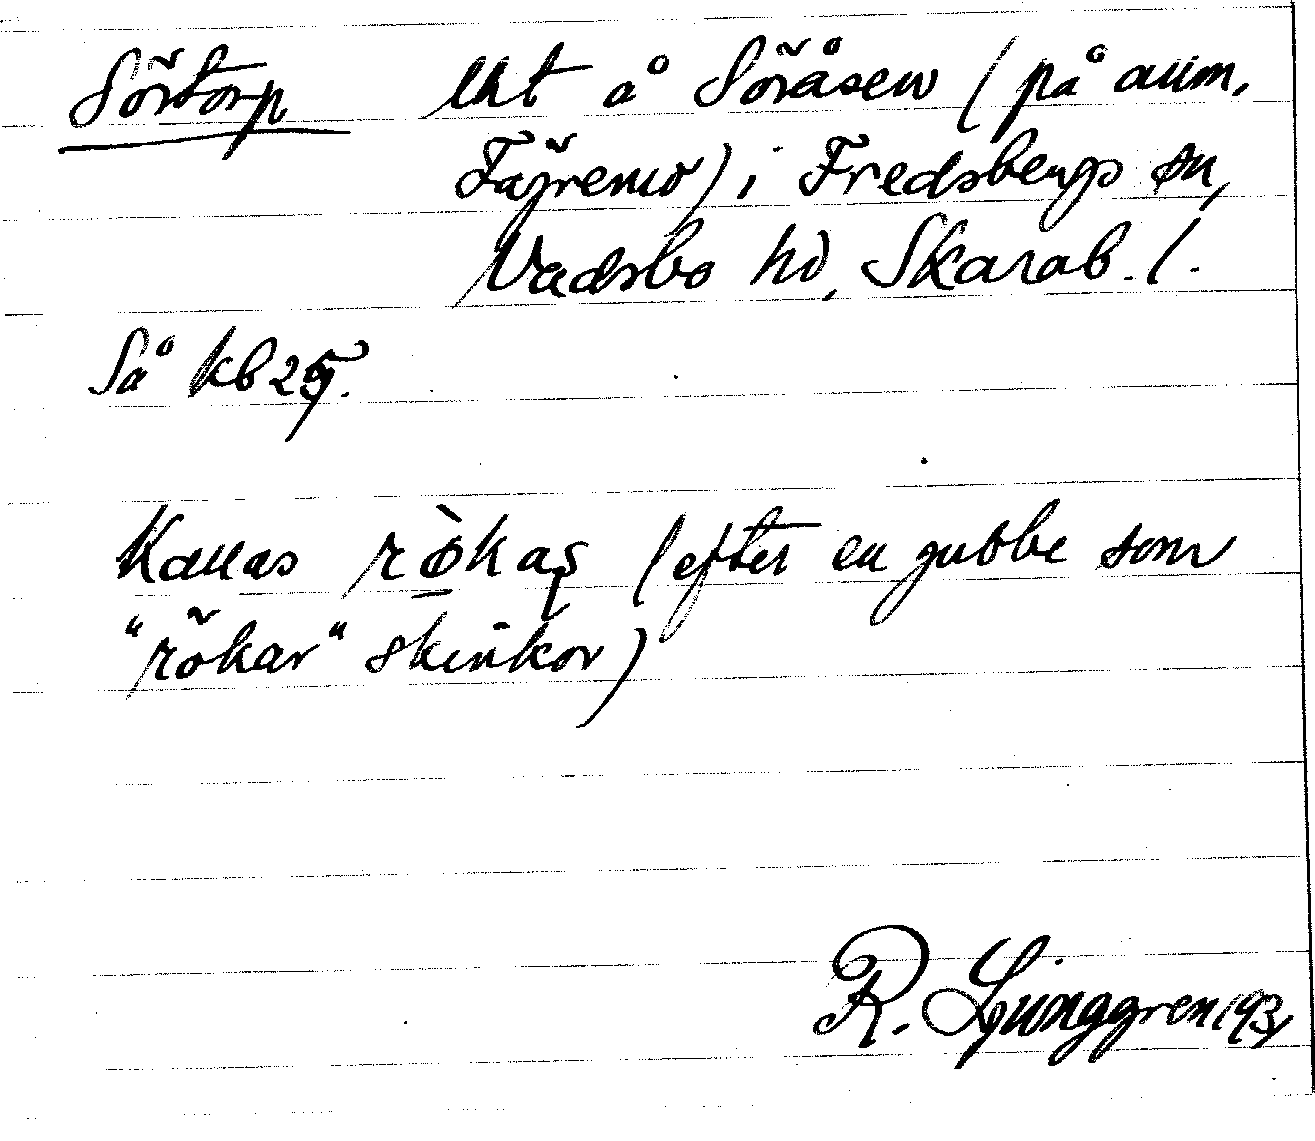 Sörtorp lht å Söråsen (på allm.
Fägremo) i Fredsbergs sn,
Vadsbo hd, Skarab. l.
Så kb 25.
Kallas rökas (efter en gubbe som
"rökar" skinkor)
R. Ljunggren 1931